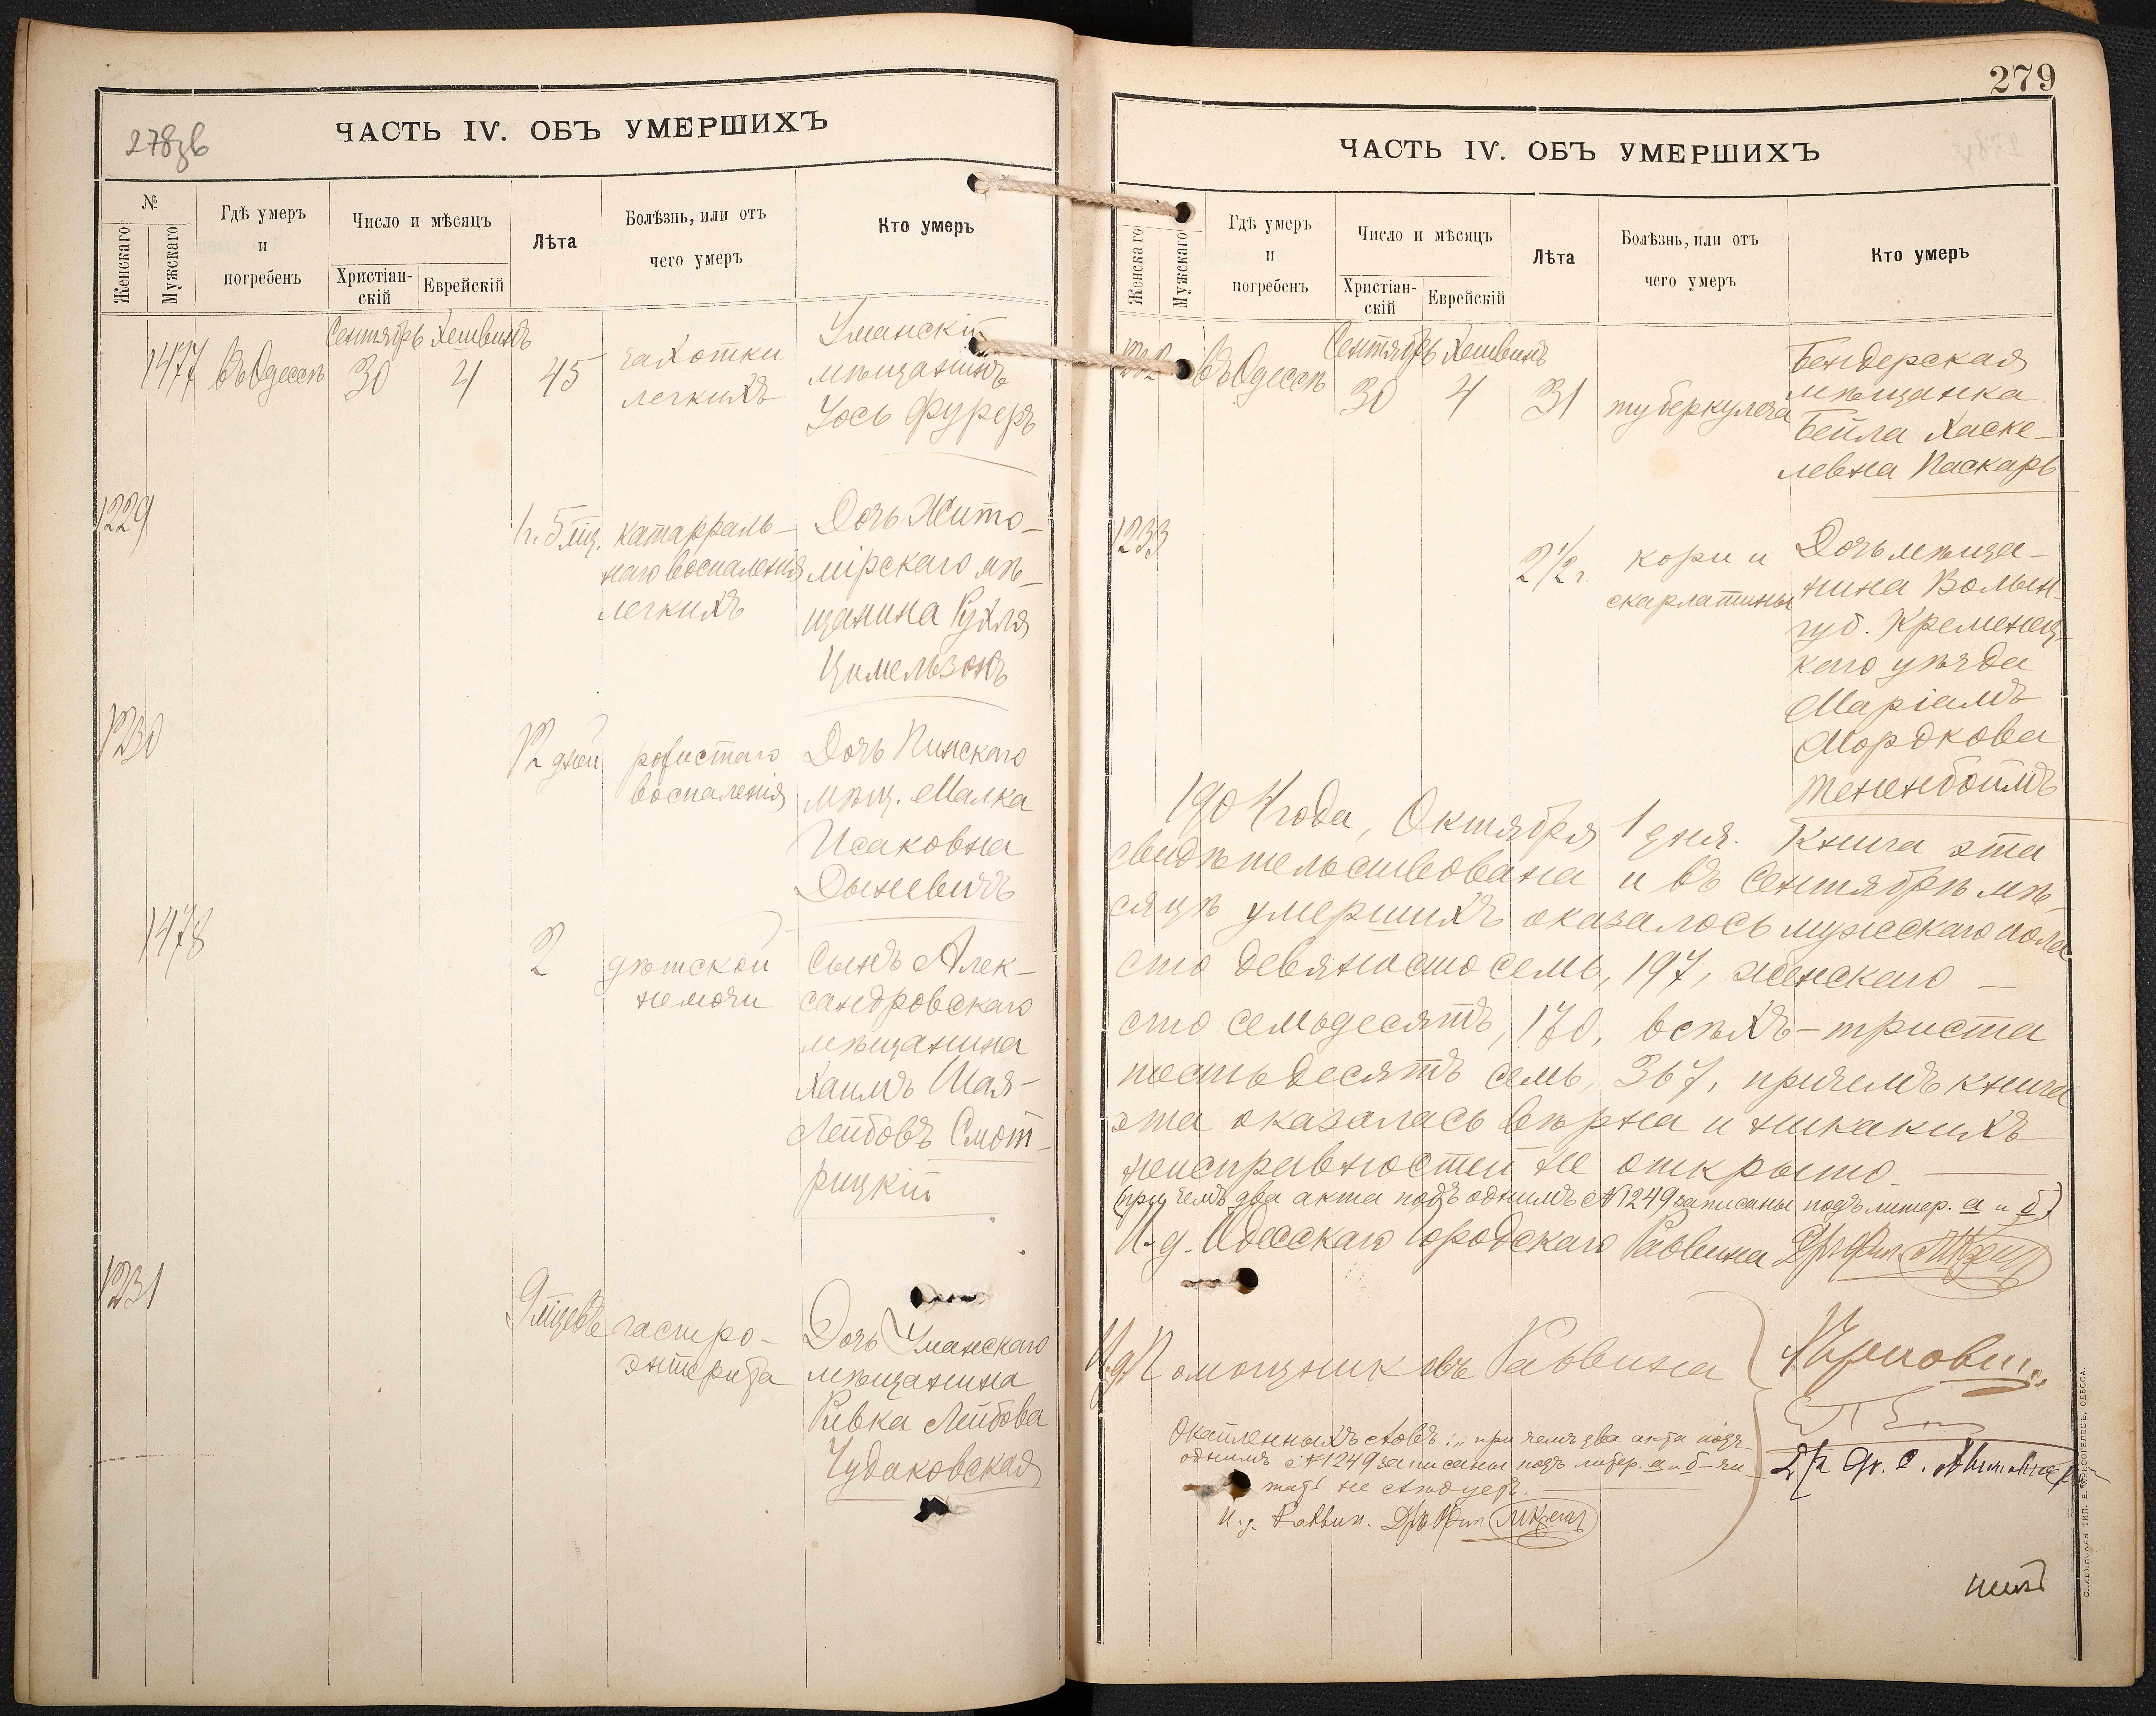 278зв
ЧАСТЬ IV. ОБЪ УМЕРШИХЪ
№
Женскаго
Мужскаго
Гдѣ умеръ
и
погребенъ
Число и мѣсяцъ
Христіан-
скій
Еврейскій
Лѣта
Болѣзнь, или отъ
чего умеръ
Кто умеръ
Сентябрь Хешвинъ
1477 въ Одессѣ 30 4 45
чахотки
легкихъ
Уманскій
мѣщанинъ
Іось Фуреръ
1229
1 г. 5 мц.
катарраль-
наго воспаленія
легкихъ
Дочь Жито-
мірскаго мѣ-
щанина Рухля
Цимельзонъ
1230
12 дней
рожистаго
воспаленія
Дочь Пинскаго
мѣщ. Малка
Исаковна
Дыневичъ
1478
2
дѣтской
немочи
Сынъ Алек-
сандровскаго
мѣщанина
Хаимъ Шая-
Лейбовъ Смот-
рицкій
1231
9 мцевъ
гастро-
энтерита
Дочь Уманскаго
мѣщанина
Ривка Лейбова
Чудаковская
279
ЧАСТЬ IV. ОБЪ УМЕРШИХЪ
Женскаго
Мужскаго
Гдѣ умеръ
и
погребенъ
Число и мѣсяцъ
Христіан-
скій
Еврейскій
Лѣта
Болѣзнь, или отъ
чего умеръ
Кто умеръ
Сентябрь Хешвинъ
1232 въ Одессѣ 30 4 31
туберкулеза
Бендерская
мѣщанка
Бейла Хаске-
левна Паскарь
1233
2 1/2 г.
кори и
скарлатины
Дочь мѣща-
нина Волын.
губ. Кременец-
каго уѣзда
Маріамъ
Мордкова
Тененбоймъ
1904 года, Октября 1 дня. Книга эта
свидѣтельствована и въ Сентябрѣ мѣ-
сяцѣ умершихъ оказалось мужескаго пола
сто девяносто семь, 197, женскаго —
сто семьдесятъ, 170, всѣхъ - триста
шестьдесятъ семь, 367, причемъ книга
эта оказалась вѣрна и никакихъ
неисправностей не открыто.
(при чемъ два акта подъ однимъ № 1249 записаны подъ литер. а и б)
И. д. Одесскаго Городскаго Раввина Д-ръ Фил.
И. д. Помощниковъ Раввина
Окайленныхъ словъ: „при чемъ два акта подъ
однимъ № 1249 записаны подъ литер. а и б - чи-
тать не слѣдуетъ.
И. д. Раввин. Д-ръ Фил